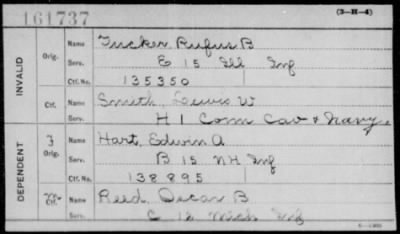 161737
(3-H-4)
INVALID
Orig.
Name Tucker, Rufus B
Serv. E 15 Ill Inf
Ctf. No. 135350
Ctf.
Name Smith, Lewis W
Serv. H 1 Conn Cav & Navy.
DEPENDENT
Orig.
Name Hart, Edwin A
Serv. B 15 NH Inf
Ctf. No. 138895
Ctf.
Name Reed, Oscar B
Serv. C 12 Mich Inf